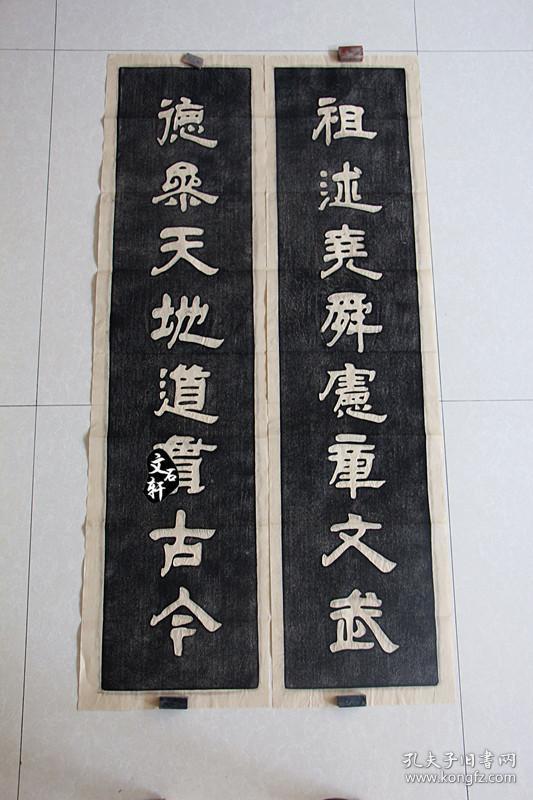 祖述堯舜憲章文武
德參天地道貫古今
文石軒
孔夫子旧書网
www.kongfz.com